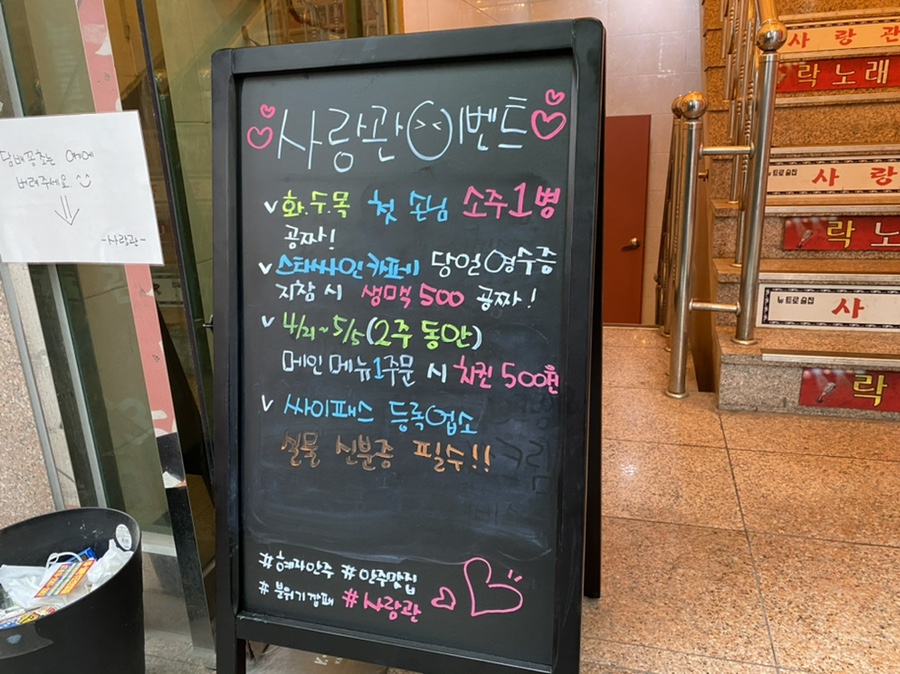 사랑관 이벤트
v 화.수.목 첫 손님 소주1병
공짜!
v 스타싸인카페 당일영수증
지참 시 생맥 500 공짜!
v 4/21~5/5(2주 동안)
메인 메뉴1주문 시 치킨 500원
v 싸이패스 등록업소
실물 신분증 필수!!
#혜자안주 #안주맛집
#분위기깡패 #사랑관
담배꽁초는 여기에
버려주세요
-사랑관-
사 랑 관
락 노 래
뉴트로술집 사 랑
락 노
뉴트로술집 사
락